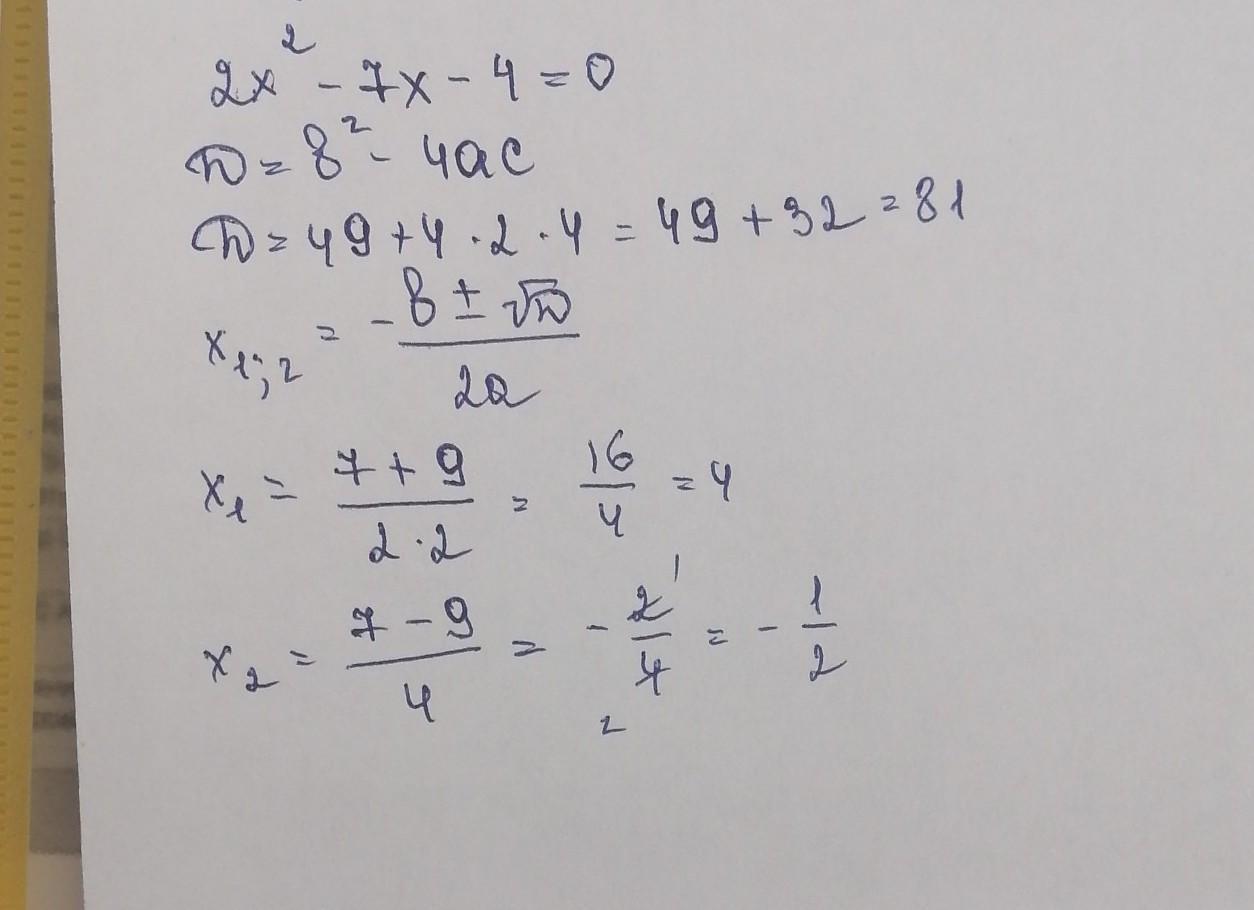 2x² - 7x - 4 = 0
D = b² - 4ac
D = 49 + 4 · 2 · 4 = 49 + 32 = 81
x₁;₂ = -b ± √D / 2a
x₁ = 7 + 9 / 2 · 2 = 16 / 4 = 4
x₂ = 7 - 9 / 4 = - 2 1 / 4 2 = - 1 / 2